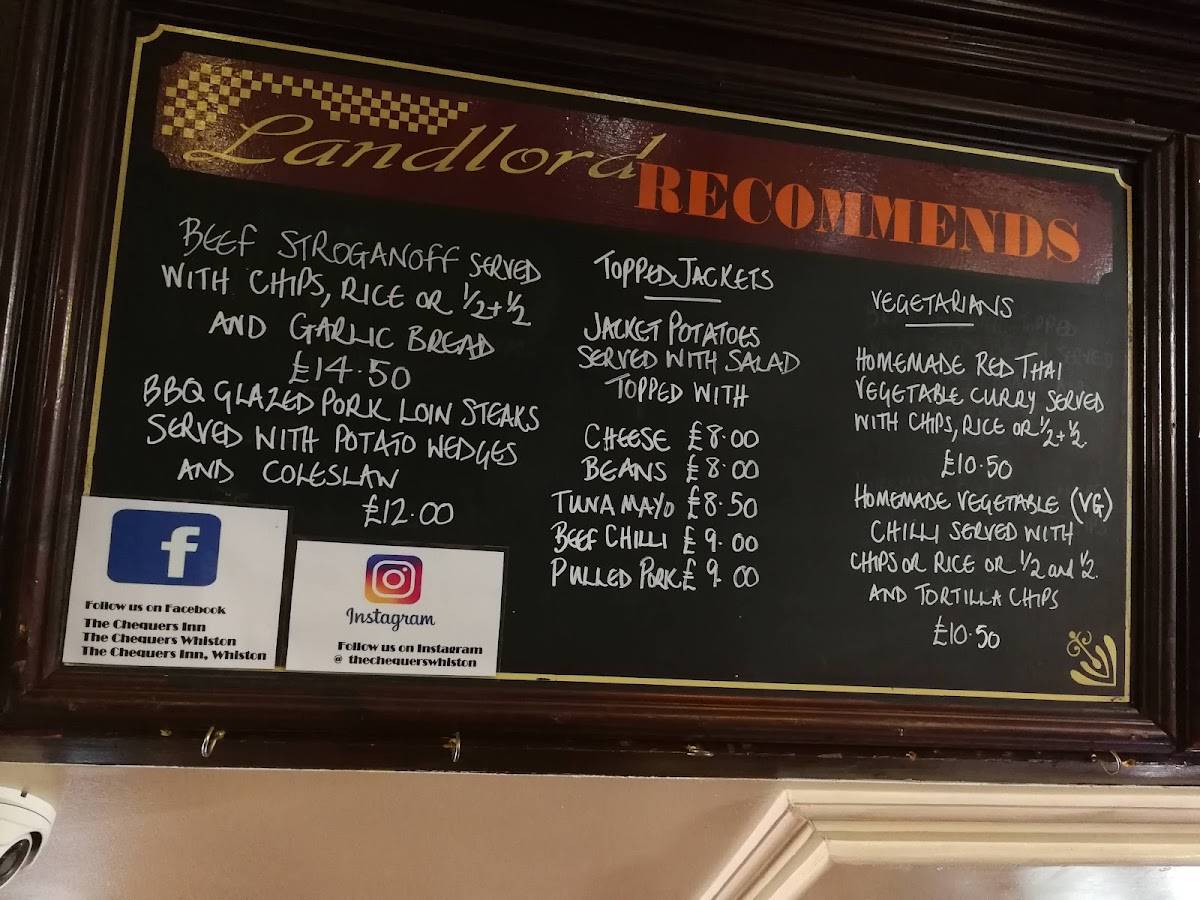 Landlord
RECOMMENDS
BEEF STROGANOFF SERVED
WITH CHIPS, RICE OR 1/2 + 1/2
AND GARLIC BREAD
£14.50
BBQ GLAZED PORK LOIN STEAKS
SERVED WITH POTATO WEDGES
AND COLESLAW
£12.00
TOPPED JACKETS
JACKET POTATOES
SERVED WITH SALAD
TOPPED WITH
CHEESE £8.00
BEANS £8.00
TUNA MAYO £8.50
BEEF CHILLI £9.00
PULLED PORK £9.00
VEGETARIANS
HOMEMADE RED THAI
VEGETABLE CURRY SERVED
WITH CHIPS, RICE OR 1/2 + 1/2.
£10.50
HOMEMADE VEGETABLE (VG)
CHILLI SERVED WITH
CHIPS OR RICE OR 1/2 and 1/2.
AND TORTILLA CHIPS
£10.50
f
Follow us on Facebook
The Chequers Inn
The Chequers Whiston
The Chequers Inn, Whiston
Instagram
Follow us on Instagram
@ thechequerswhiston